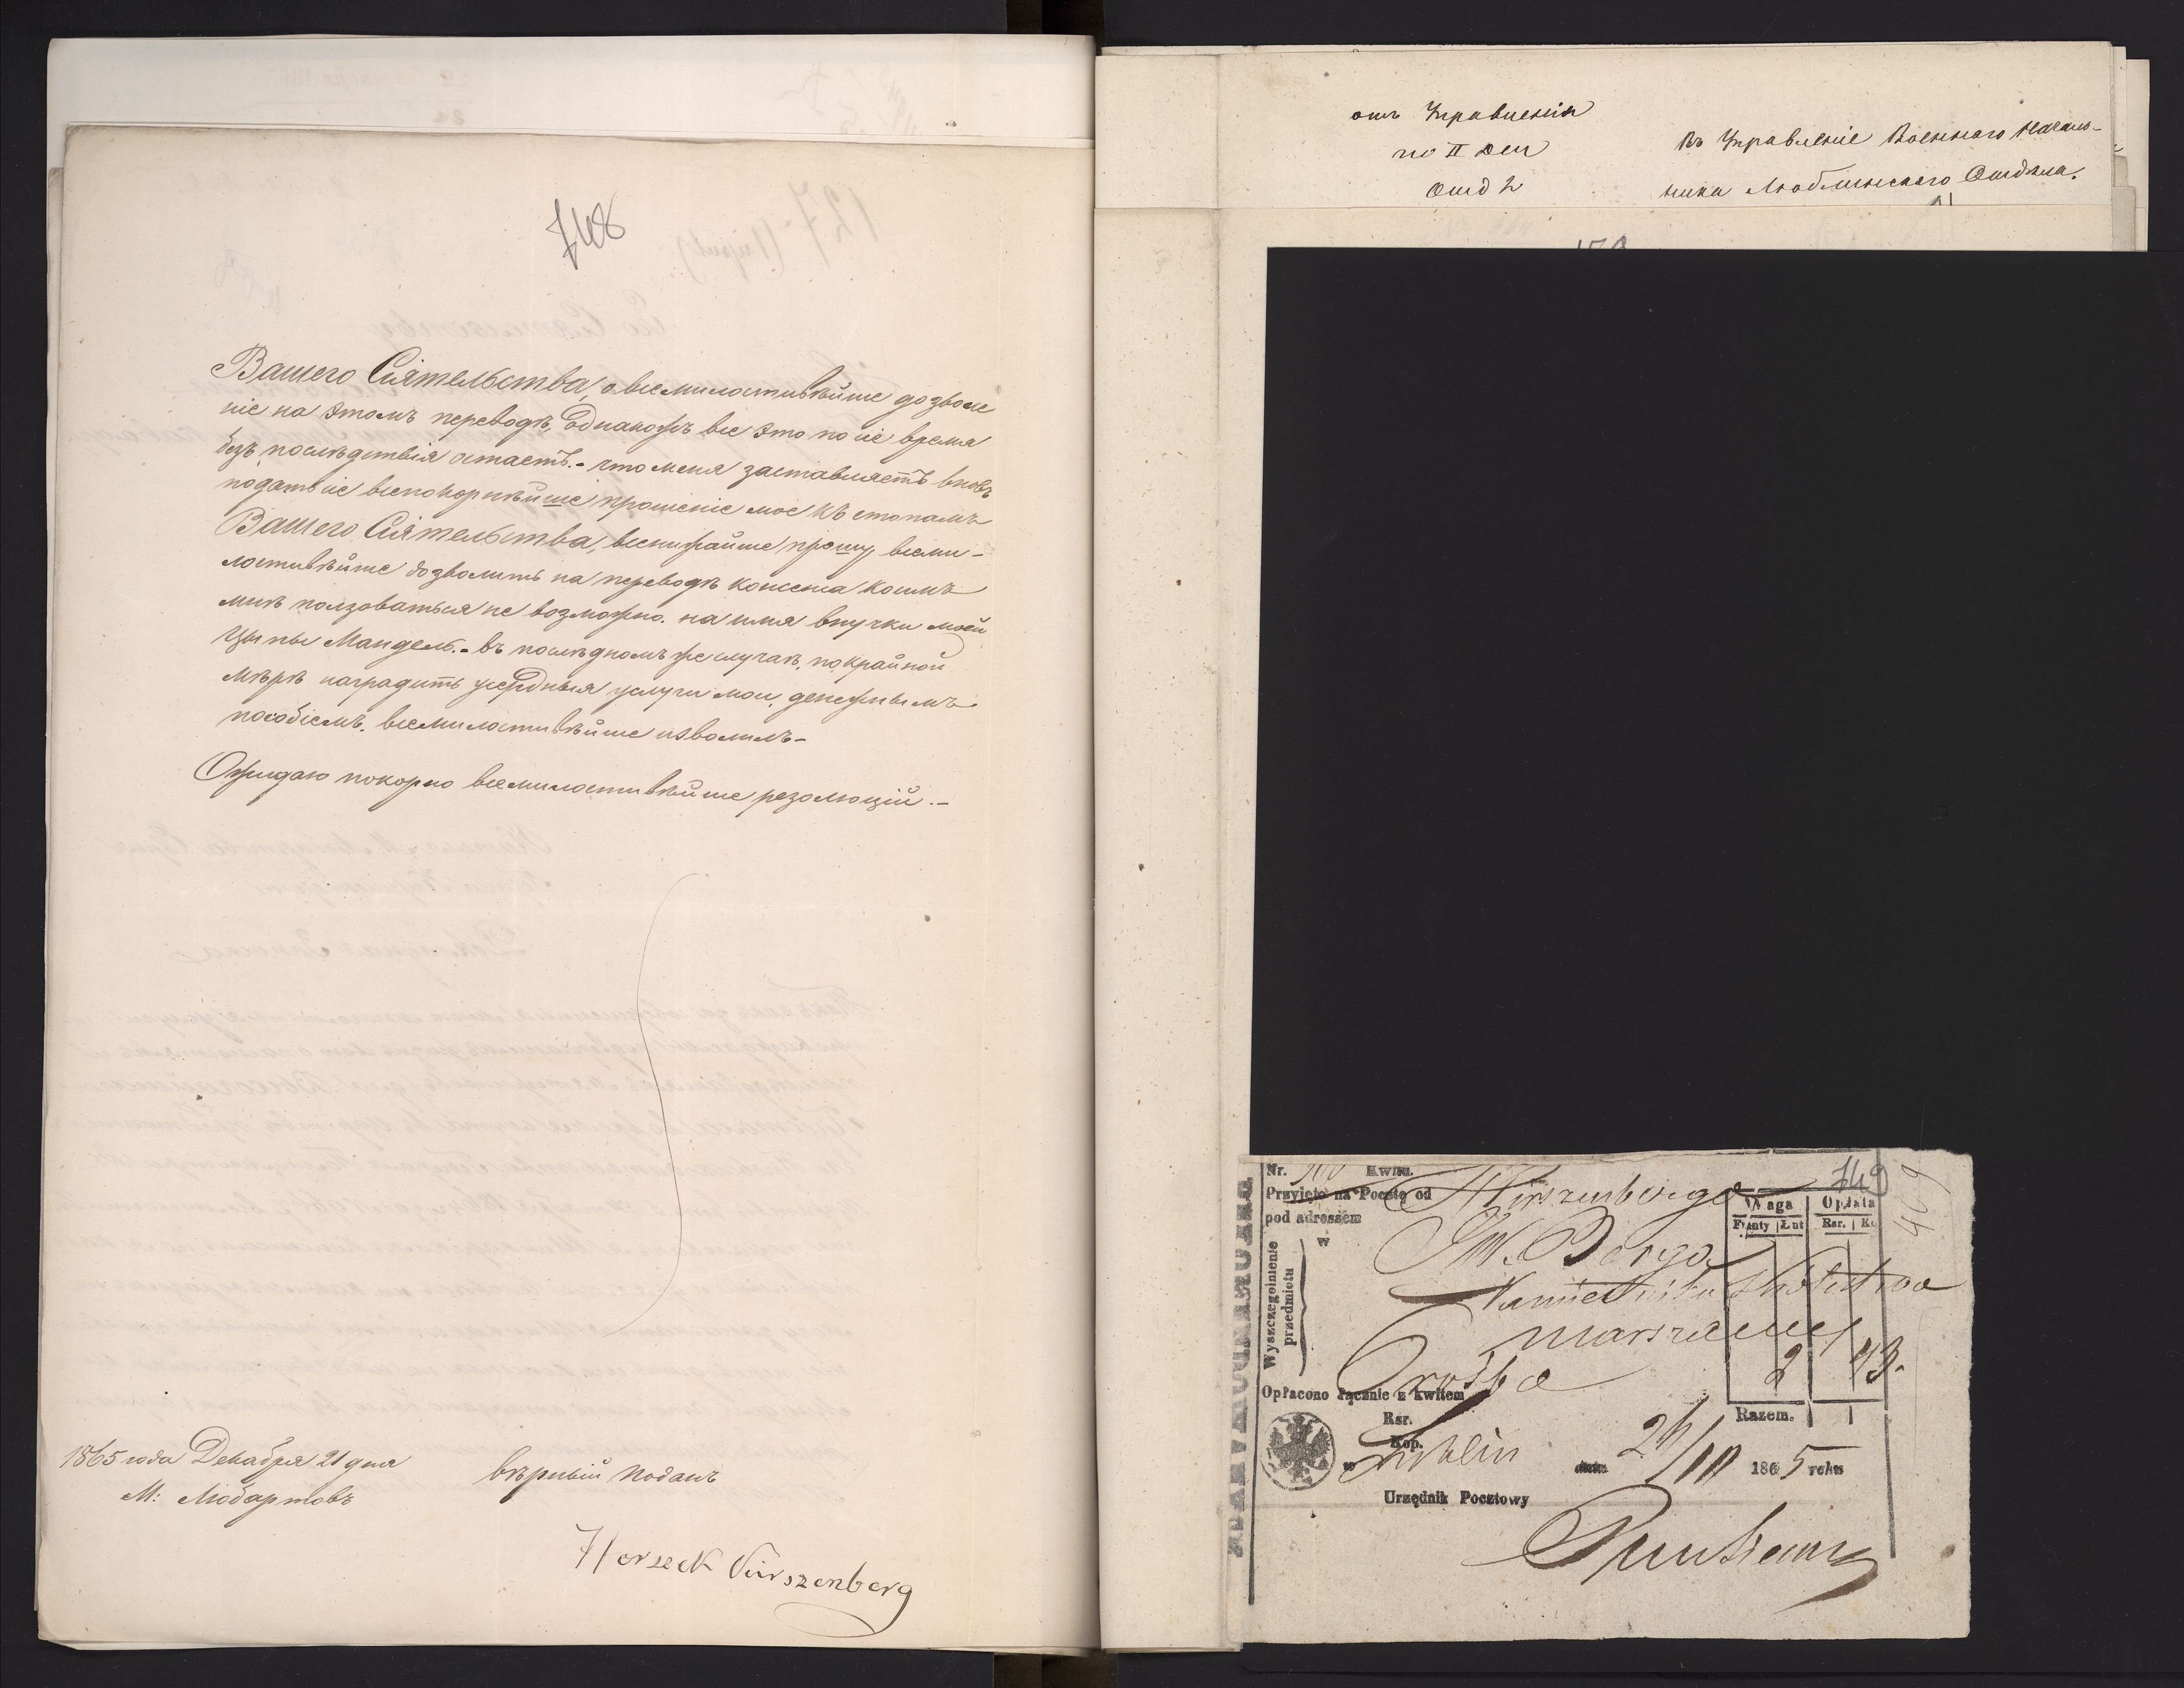 748
Вашего Сіятельства, о всемилостивѣйше дозволе
ніе на этомъ переводѣ, Однакожъ все это по сіе время
безъ послѣдствія остаетъ.- что меня заставляетъ вновь
подать сіе всепокорнѣйше прошеніе мое къ стопамъ
Вашего Сіятельства, всенижайше прошу, всеми-
лостивѣйше дозволить на переводѣ консенса коимъ
мнѣ ползоваться не возможно. на имя внучки моей
Ципы Мандель.- въ послѣдномъ же случаѣ, покрайной
мѣрѣ наградить усердныя услуги мои, денежнымъ
пособіемъ. всемилостивѣйше изволилъ-
Ожидаю покорно всемилостивѣйше резолюцій.-
1865 года Декабря 21 дня
М: Любартовъ
вѣрный подан
Herszek Kirszenberg
отъ Управленія
по II Дел
Отд 2
Въ Управленіе Военнаго Началь-
ника Люблинскаго Отдѣла.
749
469
Nr. Kwitu.
Przyjęto na Pocztę od
pod adressem
w
Wyszczególnienie
przedmiotu
JW. Berga
Namiestnika Królestwa
Prośba
Waga
Opłata
Funty Łut
Rsr. Ko
2
Opłacono łącznie z kwitem
Rsr.
Kop.
Razem.
w Lublin dnia 1865 roku
Urzędnik Pocztowy